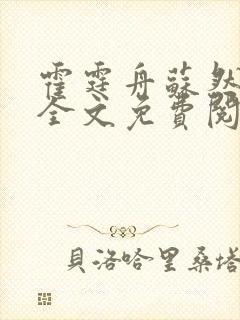 霍霆舟蘇
全文免費閱
貝洛哈里桑塔